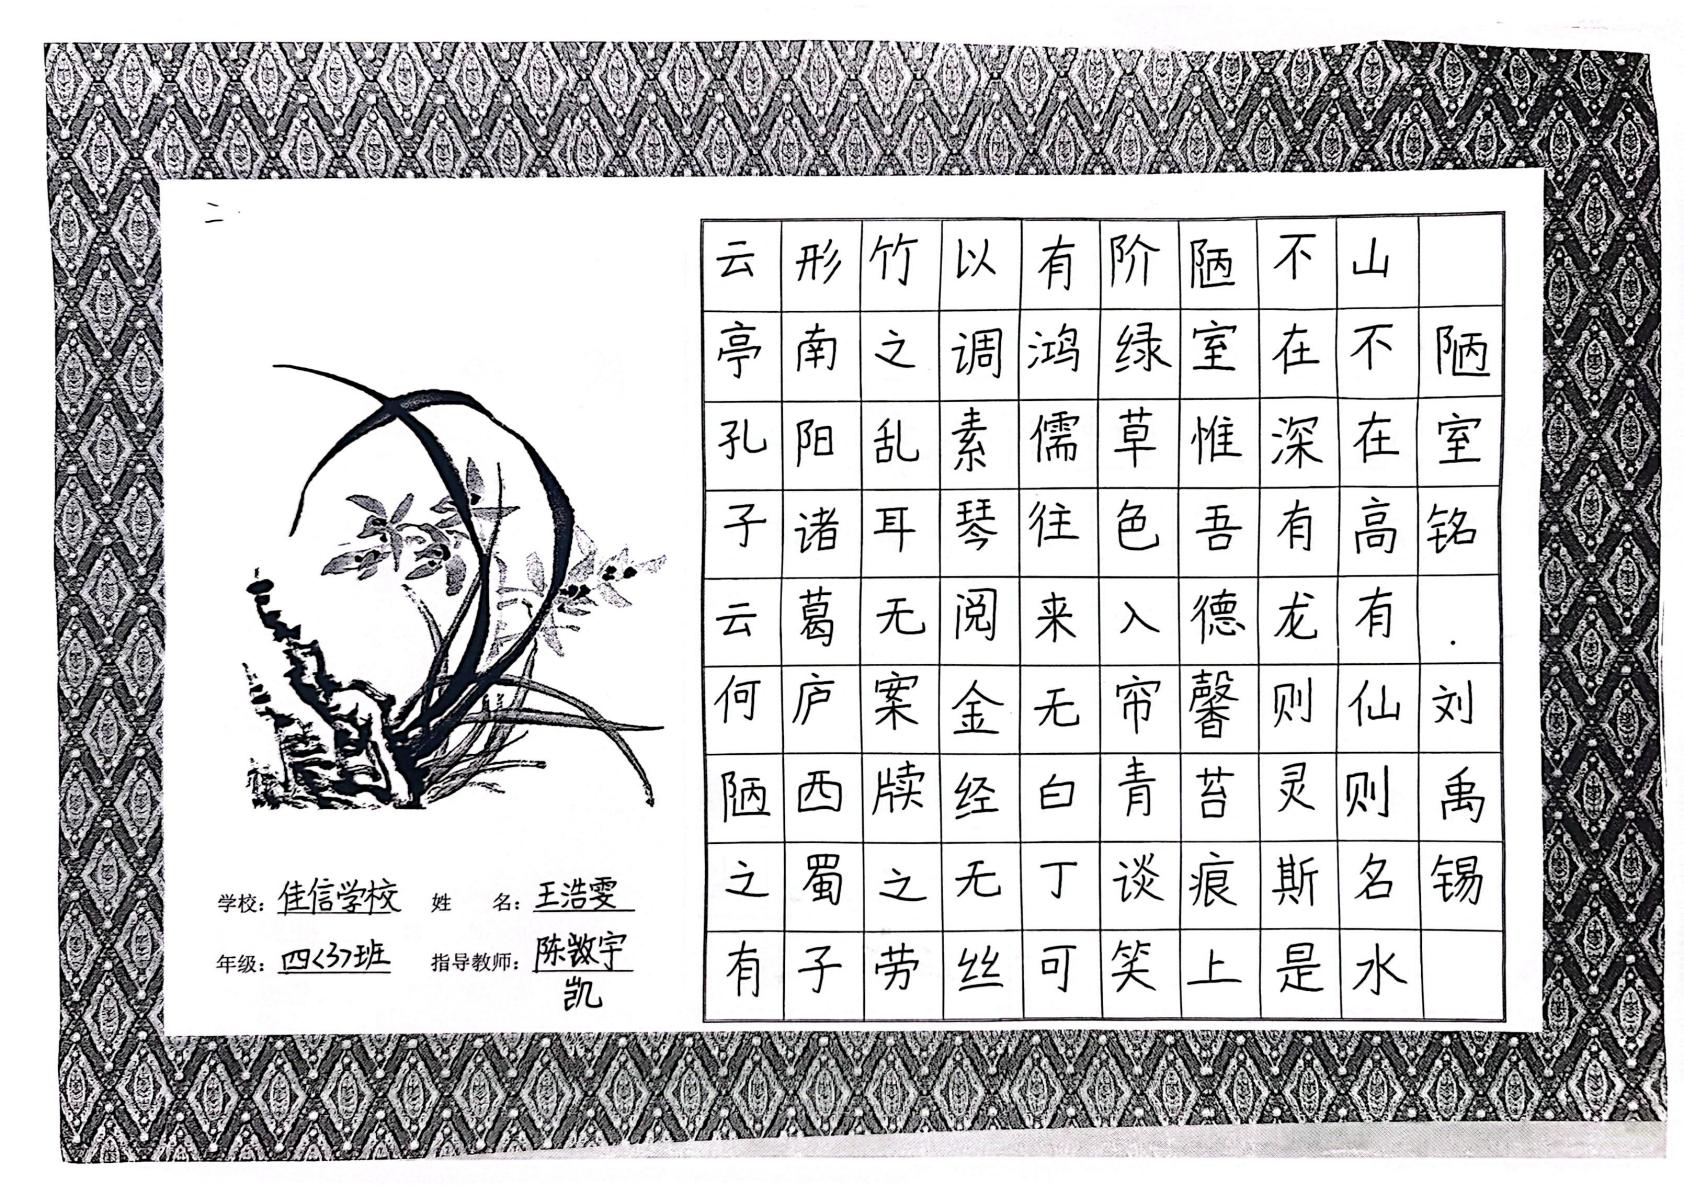 陋室铭.刘禹锡
山不在高有仙则名水
不在深有龙则灵斯是
陋室惟吾德馨苔痕上
阶绿草色入帘青谈笑
有鸿儒往来无白丁可
以调素琴阅金经无丝
竹之乱耳无案牍之劳
形南阳诸葛庐西蜀子
云亭孔子云何陋之有
二
学校：佳信学校 姓 名：王浩雯
年级：四<3>班 指导教师：陈宇
凯